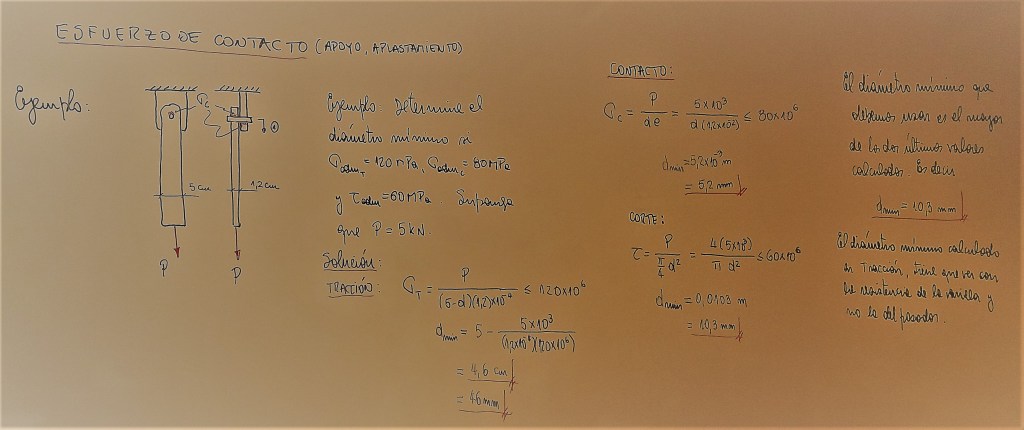 ESFUERZO DE CONTACTO (APOYO, APLASTAMIENTO)
Ejemplo:
σc
d
5 cm
1,2 cm
P
P
Ejemplo Determine el
diámetro mínimo si
σadmT = 120 MPa, σadmC = 80MPa
y τadm = 60MPa Suponga
que P = 5 kN.
Solución:
TRACCIÓN: σT = P / (5-d)(1,2)x10⁻⁴ ≤ 120x10⁶
dmin = 5 - 5x10³ / (1,2x10⁻²)(120x10⁶)
= 4,6 cm
= 46 mm
CONTACTO:
σc = P / de = 5x10³ / d(1,2x10⁻²) ≤ 80x10⁶
dmin = 5,2x10⁻³ m
= 5,2 mm
CORTE:
τ = P / (π/4 d²) = 4(5x10³) / π d² ≤ 60x10⁶
dmin = 0,0103 m
= 10,3 mm
El diámetro mínimo que
debemos usar es el mayor
de los dos últimos valores
calculados. Es decir
dmin = 10,3 mm
El diámetro mínimo calculado
en Tracción, tiene que ver con
la resistencia de la varilla y
no la del pasador.